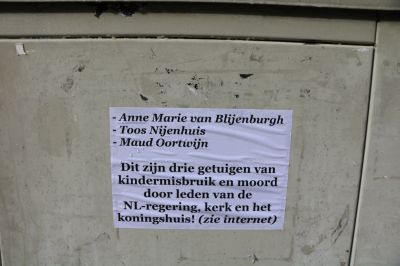 - Anne Marie van Blijenburgh
- Toos Nijenhuis
- Maud Oortwijn
Dit zijn drie getuigen van
kindermisbruik en moord
door leden van de
NL-regering, kerk en het
koningshuis! (zie internet)